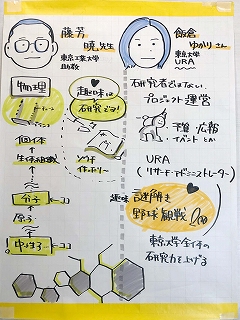 藤芳
暁 先生
東京工業大学
助教
物理
趣味は
研究です!
個体
生体組織
分子
原子
中性子
ココ
ココ
飯倉
ゆかり さん
東京大学
URA
研究者ではない
プロジェクト運営
予算/広報
イベント とか
URA
(リサーチ・アドミニストレーター)
趣味
謎解き
野球観戦
東京大学全体の
研究力を上げる